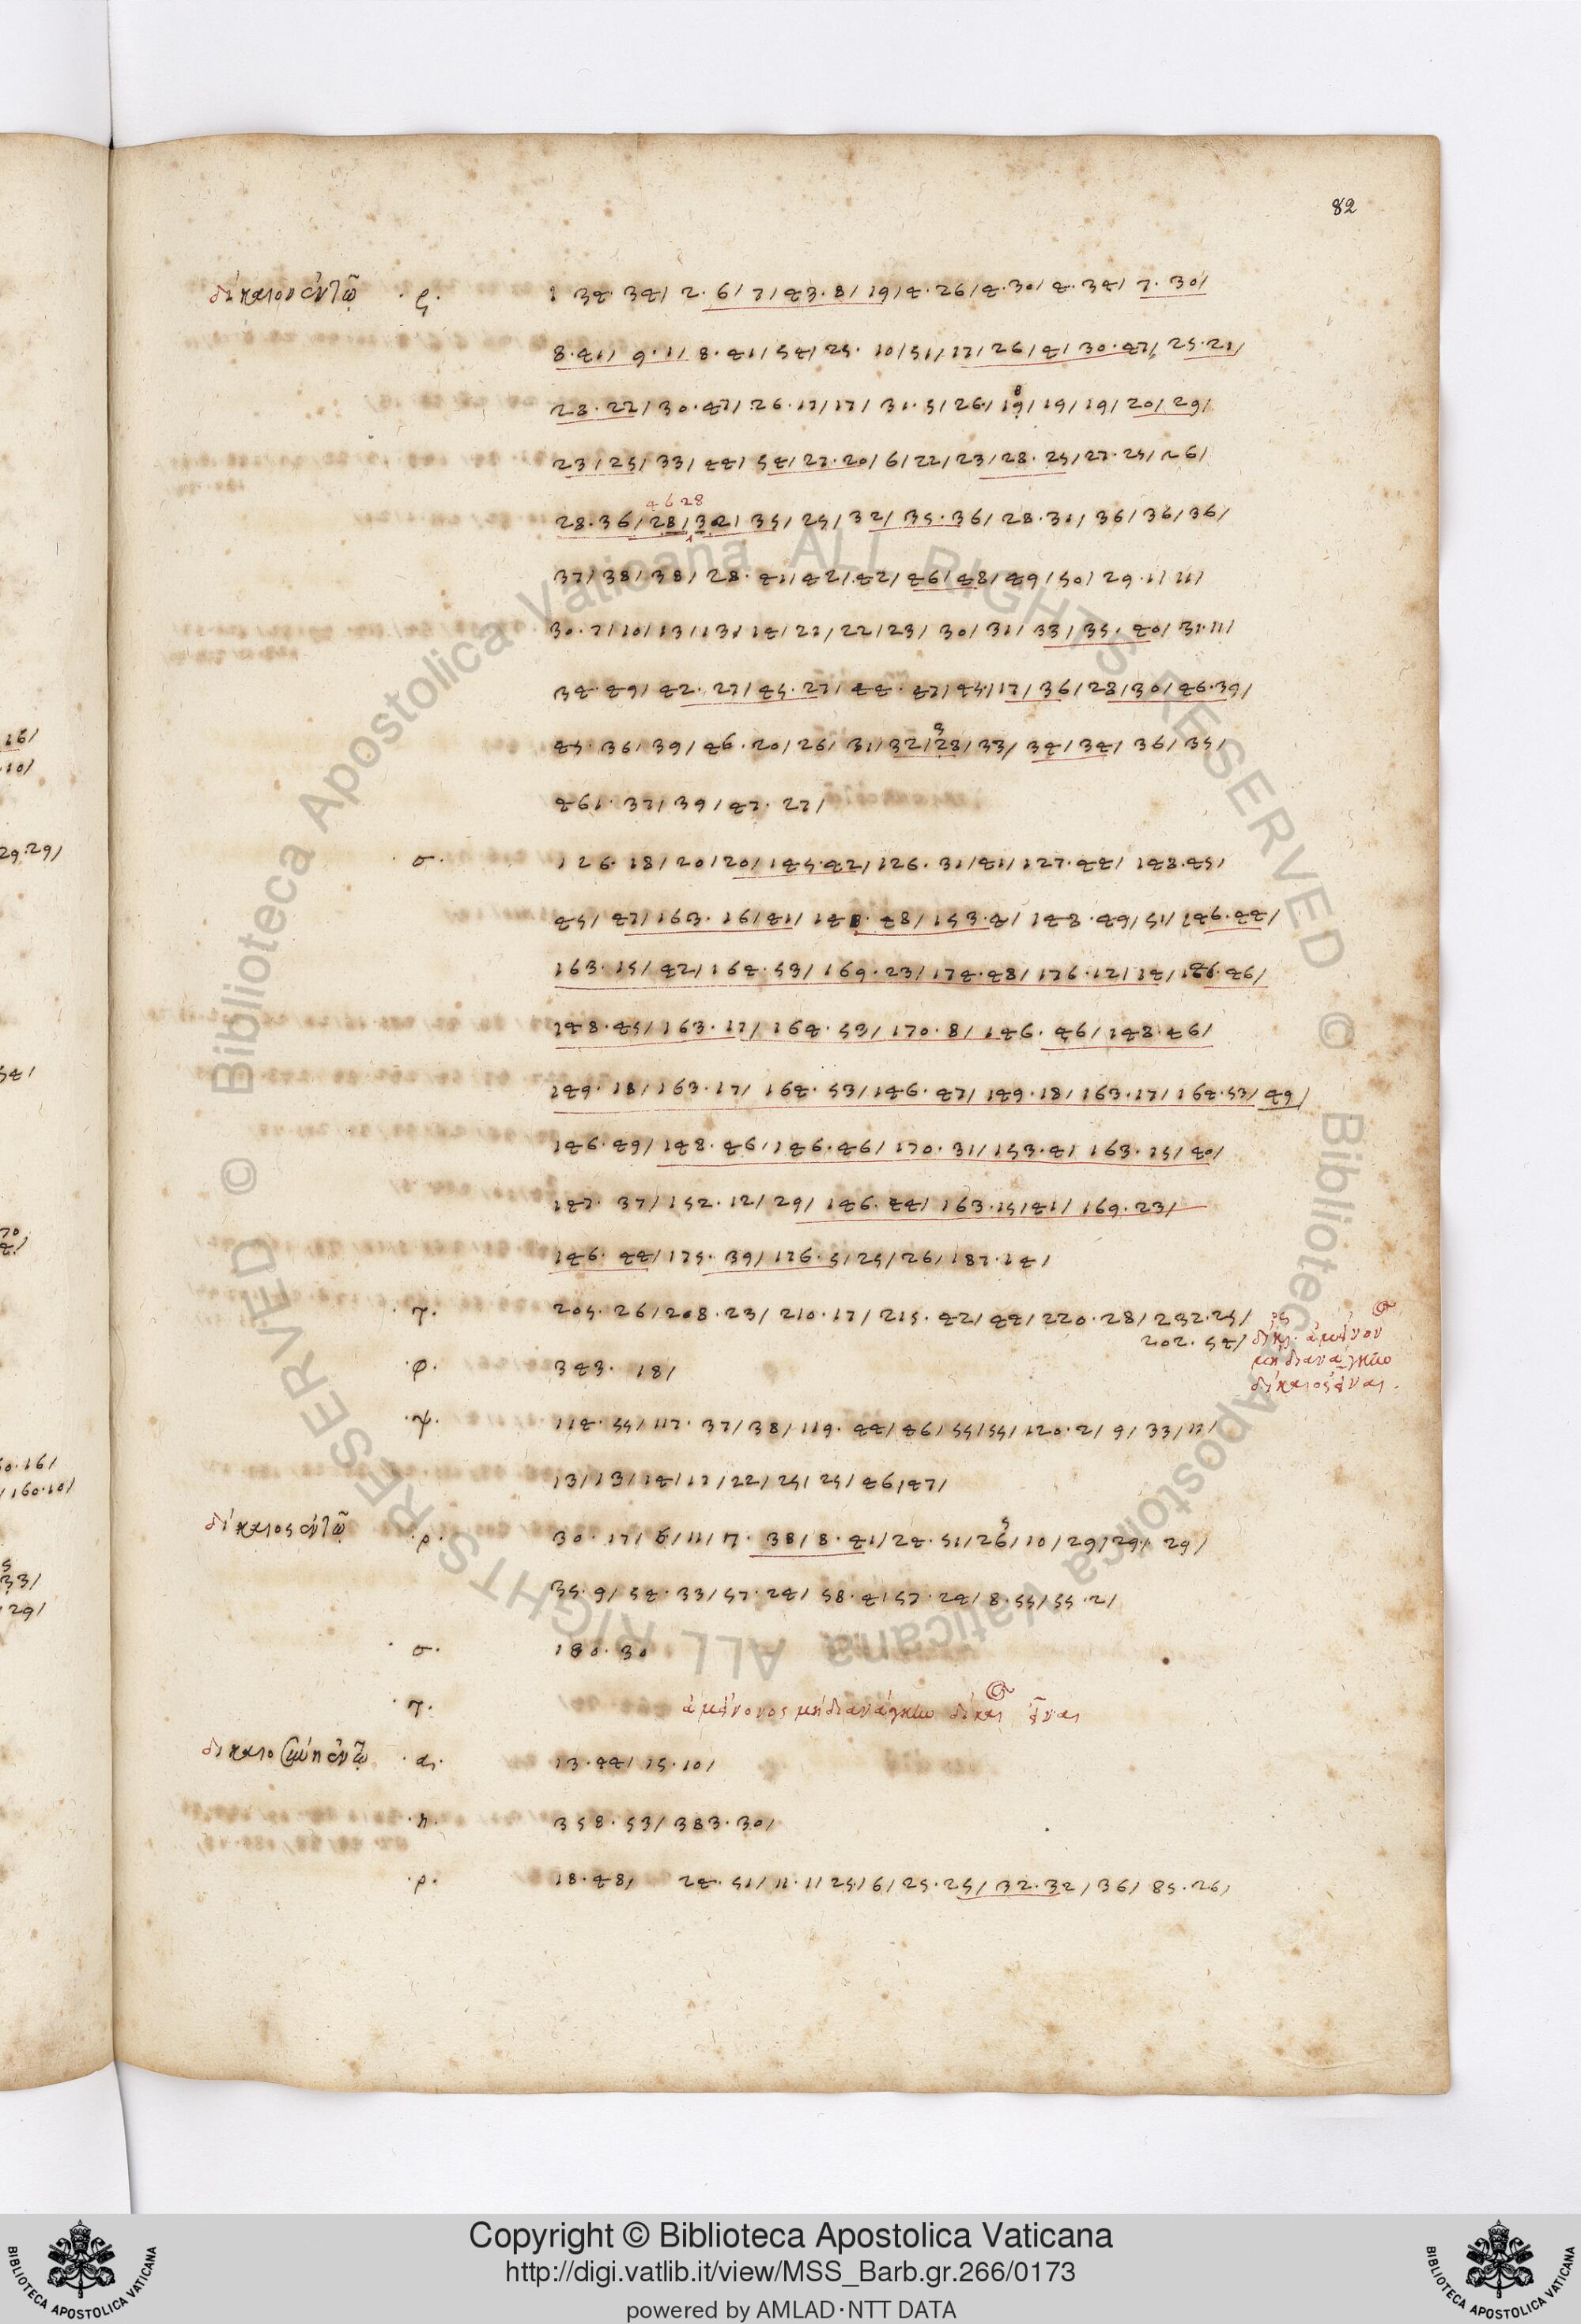 82
δίκαιον ἐν τῷ · ρ. 1 34. 34/ 2. 6/ 7/ 43. 8/ 19/ 4. 26/ 4. 30/ 4. 34/ 7. 30/
8. 41/ 9. 1/ 8. 41/ 54/ 25. 10/ 51/ 17/ 26/ 4/ 30. 47/ 25. 21/
28. 22/ 30. 47/ 26. 17/ 17/ 31. 5/ 26/ 19/ 19/ 19/ 20/ 29/
23/ 25/ 33/ 44/ 54/ 27. 20/ 6/ 22/ 23/ 28. 25/ 27. 25/ 26/
4 6 28
28. 36/ 28/ 302/ 35/ 25/ 32/ 35. 36/ 28. 31/ 36/ 36/ 36/
37/ 38/ 38/ 28. 41/ 42/ 42/ 46/ 48/ 49/ 50/ 29. 1/ 11/
30. 7/ 10/ 13/ 13/ 14/ 21/ 22/ 23/ 30/ 31/ 33/ 35. 40/ 31. 11/
34. 49/ 42. 27/ 45. 27/ 44. 47/ 45/ 17/ 36/ 28/ 30/ 46. 39/
45. 36/ 39/ 46. 20/ 26/ 31/ 32/ 28/ 33/ 34/ 34/ 36/ 35/
461. 37/ 39/ 47. 27/
· σ. 126. 18/ 20/ 20/ 145. 42/ 126. 31/ 41/ 127. 44/ 148. 45/
45/ 47/ 163. 16/ 41/ 148. 48/ 153. 4/ 148. 49/ 51/ 146. 44/
163. 15/ 42/ 164. 53/ 169. 23/ 174. 48/ 176. 12/ 14/ 146. 46/
148. 45/ 163. 17/ 164. 53/ 170. 8/ 146. 46/ 148. 46/
149. 18/ 163. 17/ 164. 53/ 146. 47/ 149. 18/ 163. 17/ 164. 53/ 49/
146. 49/ 148. 46/ 146. 46/ 170. 31/ 153. 4/ 163. 15/ 40/
147. 37/ 152. 12/ 29/ 146. 44/ 163. 15/ 41/ 169. 23/
146. 44/ 175. 39/ 176. 5/ 25/ 26/ 187. 14/
· τ. 205. 26/ 208. 23/ 210. 17/ 215. 42/ 44/ 220. 28/ 232. 25/
202. 54/ ἀμείνον
δίκαιος εἶναι.
· φ. 343. 18/
· ψ. 114. 55/ 117. 37/ 38/ 119. 44/ 46/ 55/ 55/ 120. 2/ 9/ 33/ 11/
13/ 13/ 14/ 17/ 22/ 25/ 25/ 46/ 47/
δίκαιος ἐν τῷ · ρ. 30. 17/ 6/ 11/ 7. 38/ 8. 41/ 24. 51/ 26/ 10/ 29/ 29/ 29/
35. 9/ 54. 33/ 57. 24/ 58. 4/ 57. 24/ 8. 55/ 55. 2/
· σ. 180. 30
· τ. ἀμείνονος
δικαιοσύνη ἐν τῷ · α. 13. 44/ 15. 10/
· η. 358. 53/ 383. 30/
· ρ. 18. 48/ 24. 51/ 11. 1/ 25/ 6/ 25. 25/ 32. 32/ 36/ 85. 26/
16/
10/
29.29/
54/
70
4/
60.16/
/160.10/
5
33/
29/
© Biblioteca Apostolica Vaticana ALL RIGHTS RESERVED © Biblioteca Apostolica Vaticana ALL RIGHTS RESERVED
Copyright © Biblioteca Apostolica Vaticana
http://digi.vatlib.it/view/MSS_Barb.gr.266/0173
powered by AMLAD·NTT DATA
BIBLIOTECA APOSTOLICA VATICANA
BIBLIOTECA APOSTOLICA VATICANA